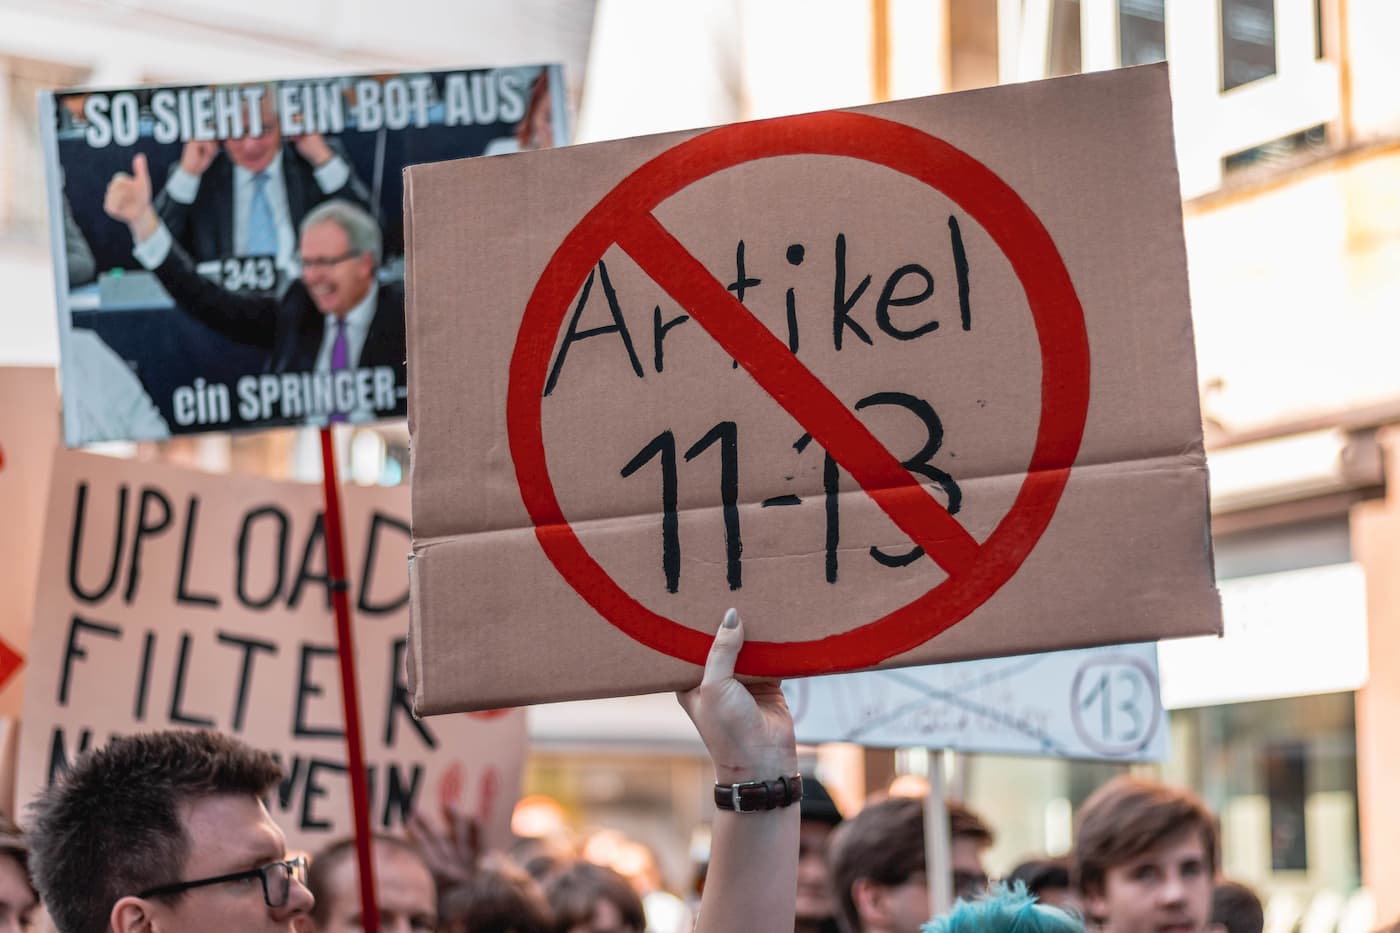 SO SIEHT EIN BOT AUS
343
ein SPRINGER-
Artikel
11-13
UPLOAD
FILTER
13